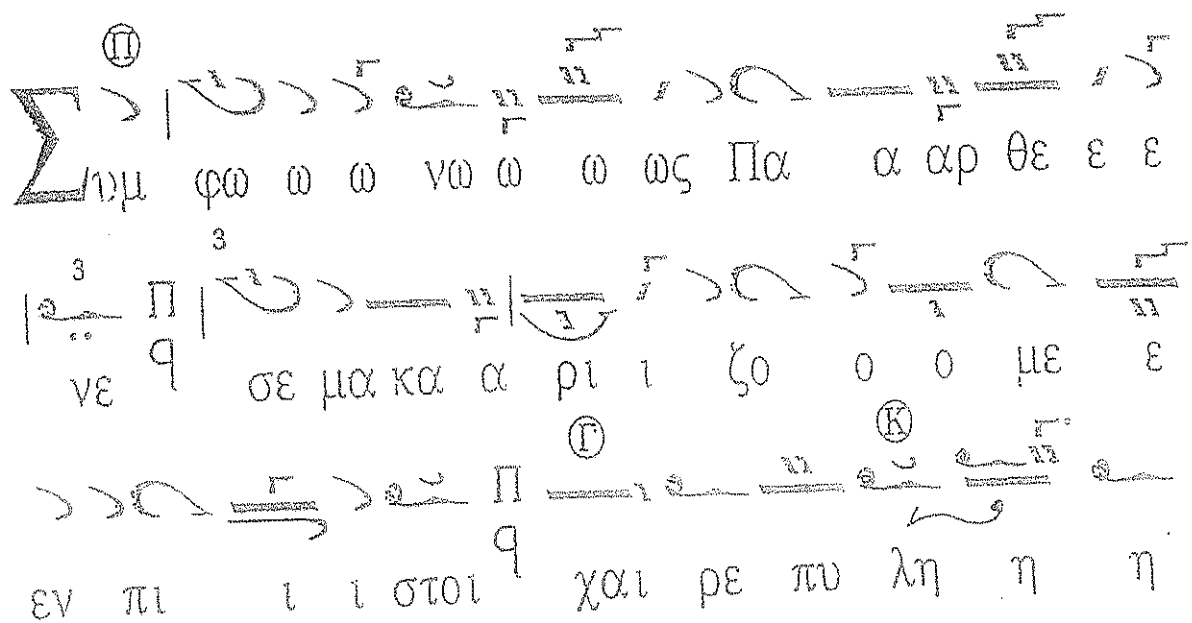 Π
Συμ φω ω ω νω ω ω ως Πα α αρ θε ε ε
3 3
νε Π q σε μα κα α ρι ι ζο ο ο με ε
Γ Κ
εν πι ι ι στοι Π q χαι ρε πυ λη η η